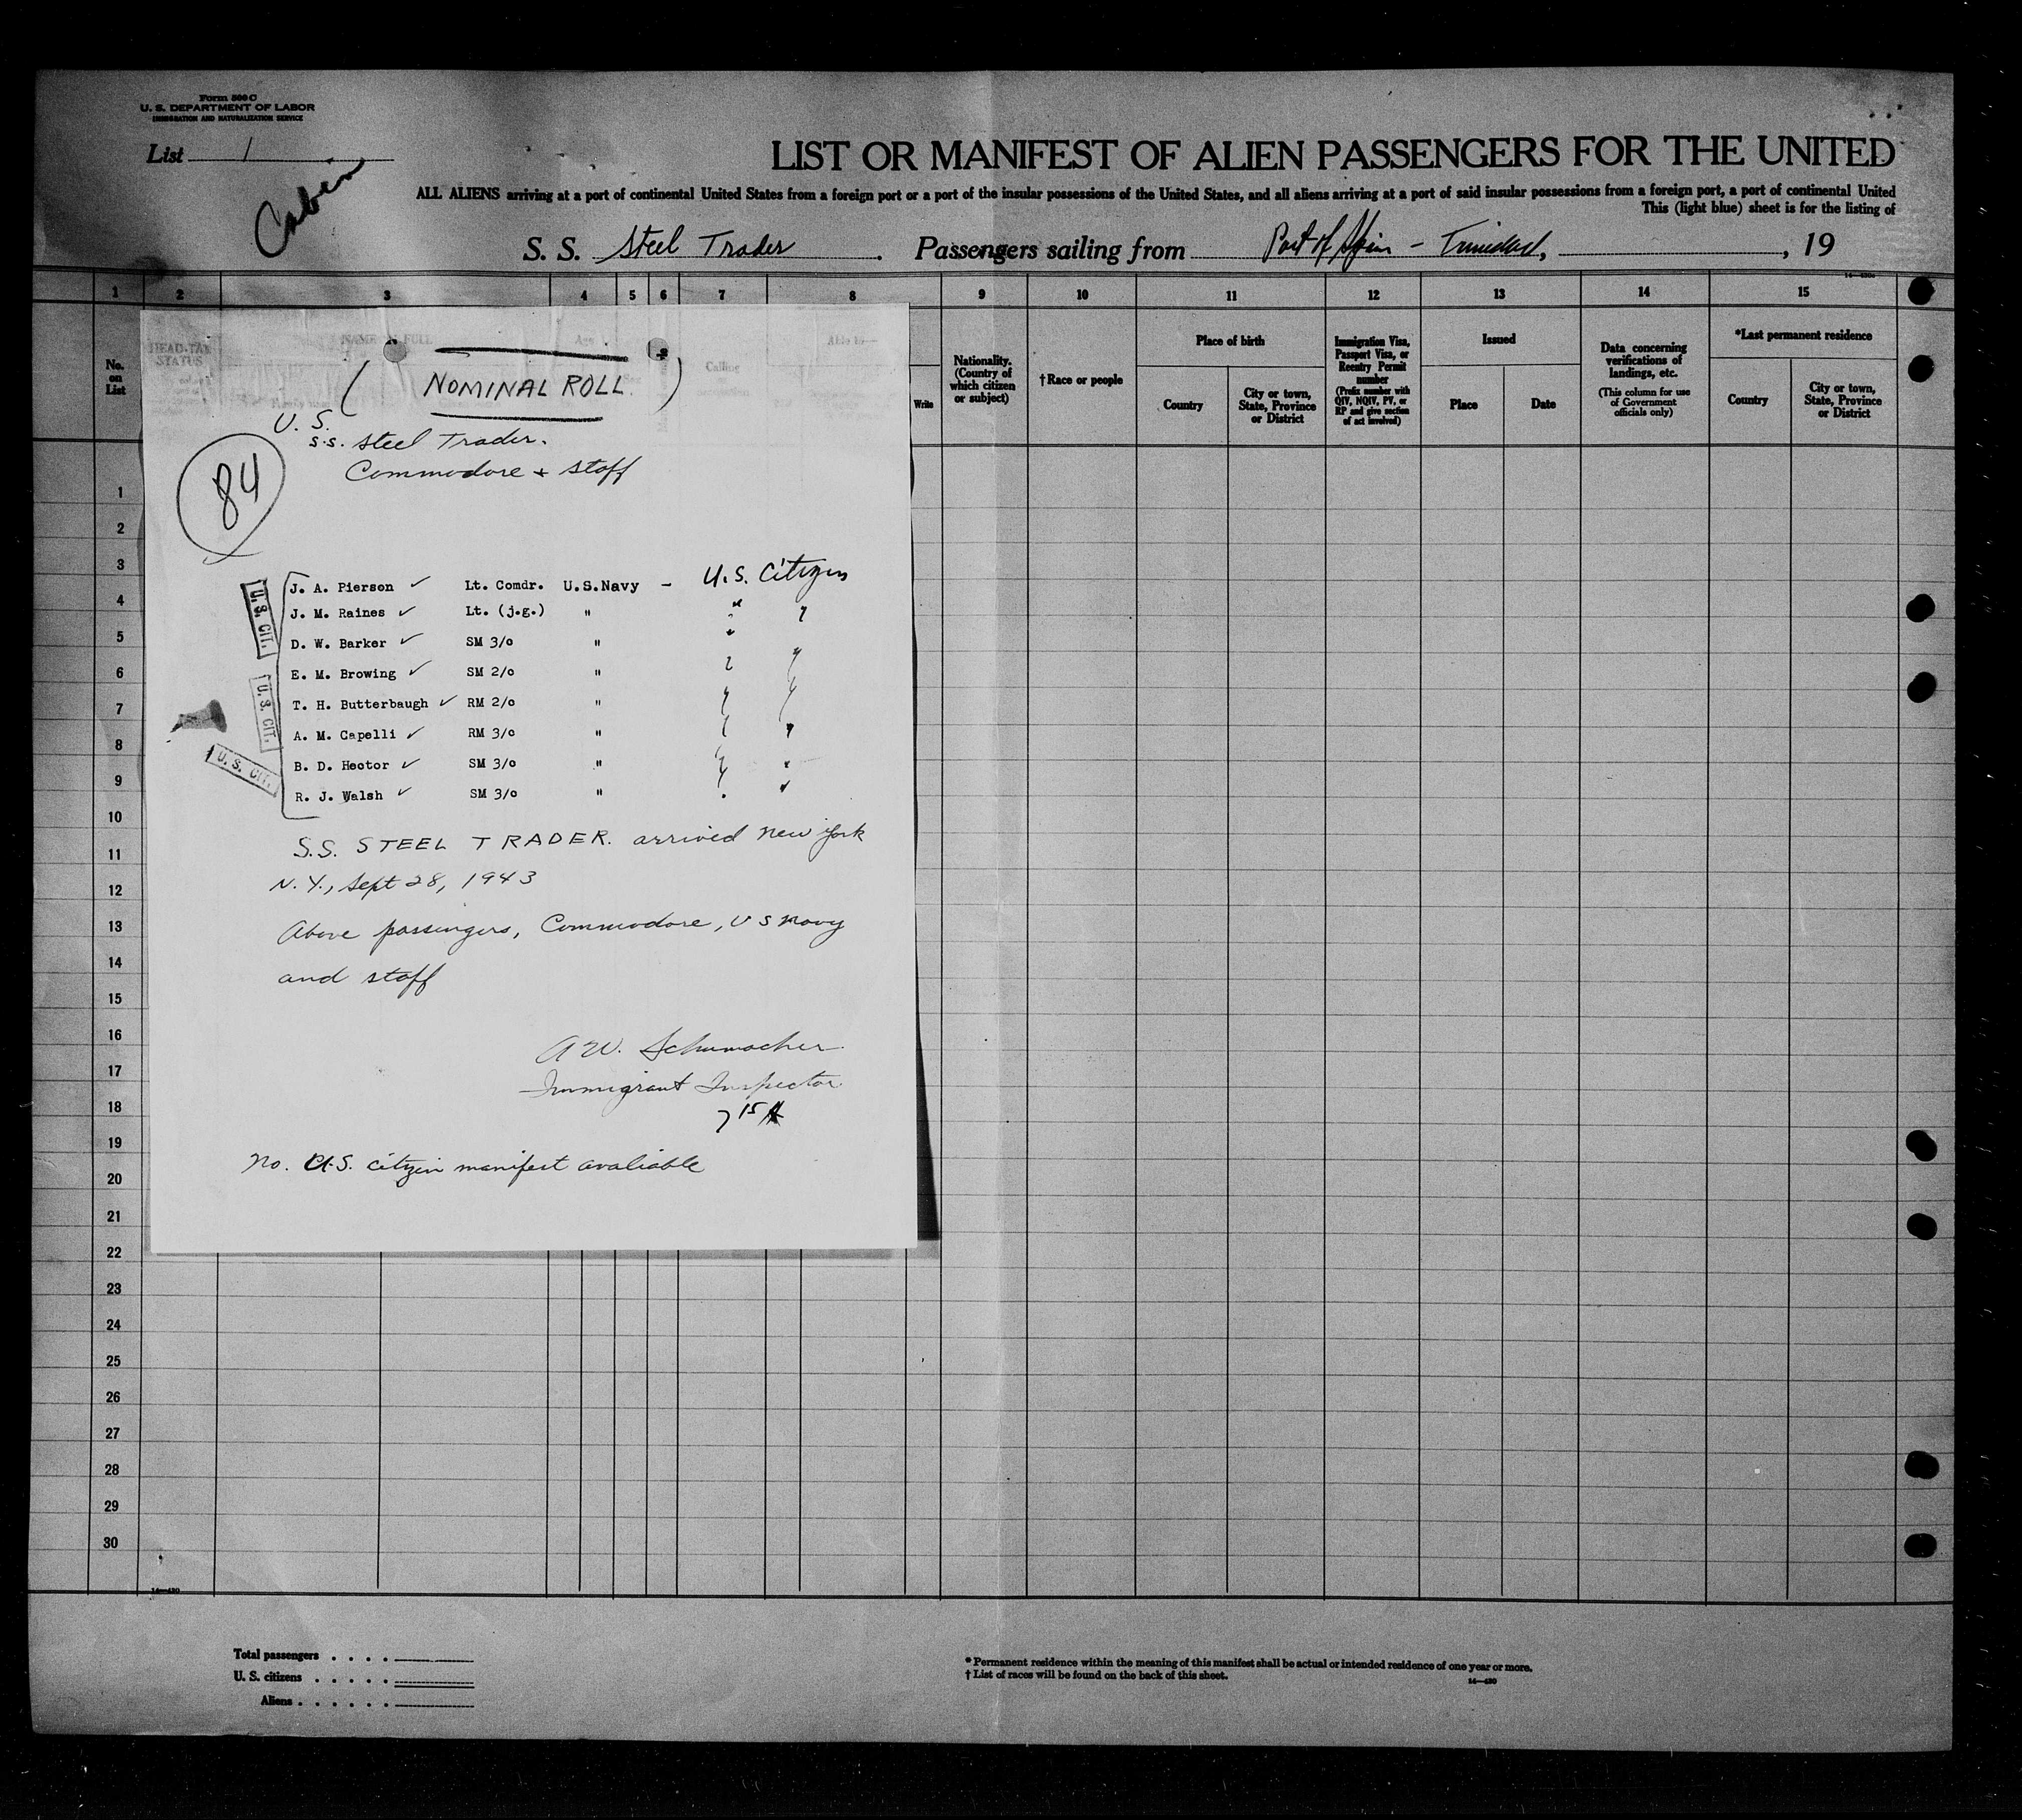 Form 500 C
U. S. DEPARTMENT OF LABOR
IMMIGRATION AND NATURALIZATION SERVICE
List 1
Cabin
LIST OR MANIFEST OF ALIEN PASSENGERS FOR THE UNITED
ALL ALIENS arriving at a port of continental United States from a foreign port or a port of the insular possessions of the United States, and all aliens arriving at a port of said insular possessions from a foreign port, a port of continental United
This (light blue) sheet is for the listing of
S. S. Steel Trader. Passengers sailing from Port of Spain - Trinidad, , 19
1 2 3 4 5 6 7 8 9 10 11 12 13 14 15
No. on List
HEAD-TAX STATUS
NAME IN FULL
Age
Calling
Able to—
Write
Nationality. (Country of which citizen or subject)
†Race or people
Place of birth
Country
City or town, State, Province or District
Immigration Visa, Passport Visa, or Reentry Permit number
(Prefix number with QIV, NQIV, PV, or RP and give section of act involved)
Issued
Place
Date
Data concerning verifications of landings, etc.
(This column for use of Government officials only)
*Last permanent residence
Country
City or town, State, Province or District
(NOMINAL ROLL.)
U. S.
S.S. Steel Trader.
Commodore + staff
84
U.S. CIT.
U.S. CIT.
U. S. CIT.
J. A. Pierson ✓ Lt. Comdr. U.S.Navy - U.S. Citizen
J. M. Raines ✓ Lt. (j.g.) " " "
D. W. Barker ✓ SM 3/c " "
E. M. Browing ✓ SM 2/c " " "
T. H. Butterbaugh ✓ RM 2/c " " "
A. M. Capelli ✓ RM 3/c " " "
B. D. Hector ✓ SM 3/c " " "
R. J. Walsh ✓ SM 3/c " " "
S.S. STEEL TRADER. arrived New York
N.Y., Sept 28, 1943
Above passengers, Commodore, U S Navy
and staff
A W. Schumacher
Immigrant Inspector.
7 15 A
No. U.S. citizen manifest avaliable
1
2
3
4
5
6
7
8
9
10
11
12
13
14
15
16
17
18
19
20
21
22
23
24
25
26
27
28
29
30
14—430
Total passengers . . . .
U. S. citizens . . . . .
Aliens . . . . . .
* Permanent residence within the meaning of this manifest shall be actual or intended residence of one year or more.
† List of races will be found on the back of this sheet.
14—430